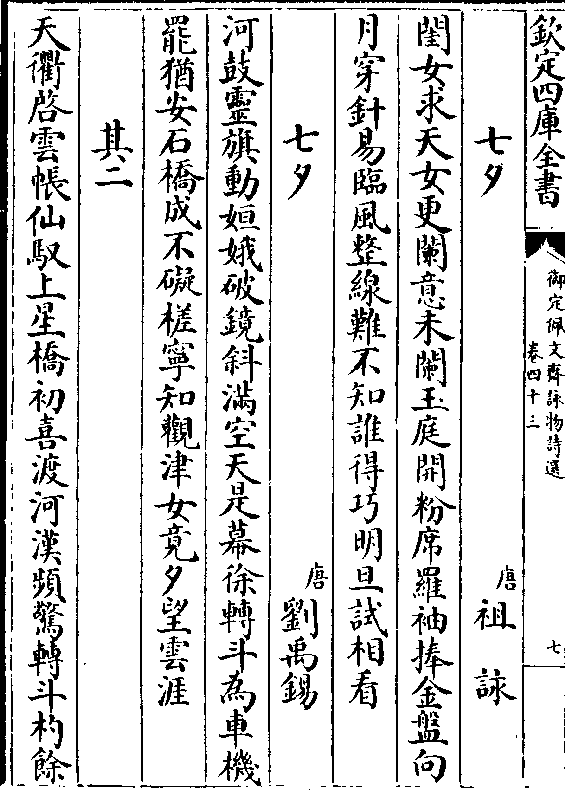 欽定四庫全書
御定佩文齋詠物詩選
卷四十三
七
七夕
唐 祖詠
閨女求天女更闌意未闌玉庭開粉席羅袖捧金盤向
月穿針易臨風整線難不知誰得巧明旦試相看
七夕
唐 劉禹錫
河鼓靈旗動姮娥破鏡斜滿空天是幕徐轉斗為車機
罷猶安石橋成不礙槎寧知觀津女竟夕望雲涯
其二
天衢啓雲帳仙馭上星橋初喜渡河漢頻驚轉斗杓餘